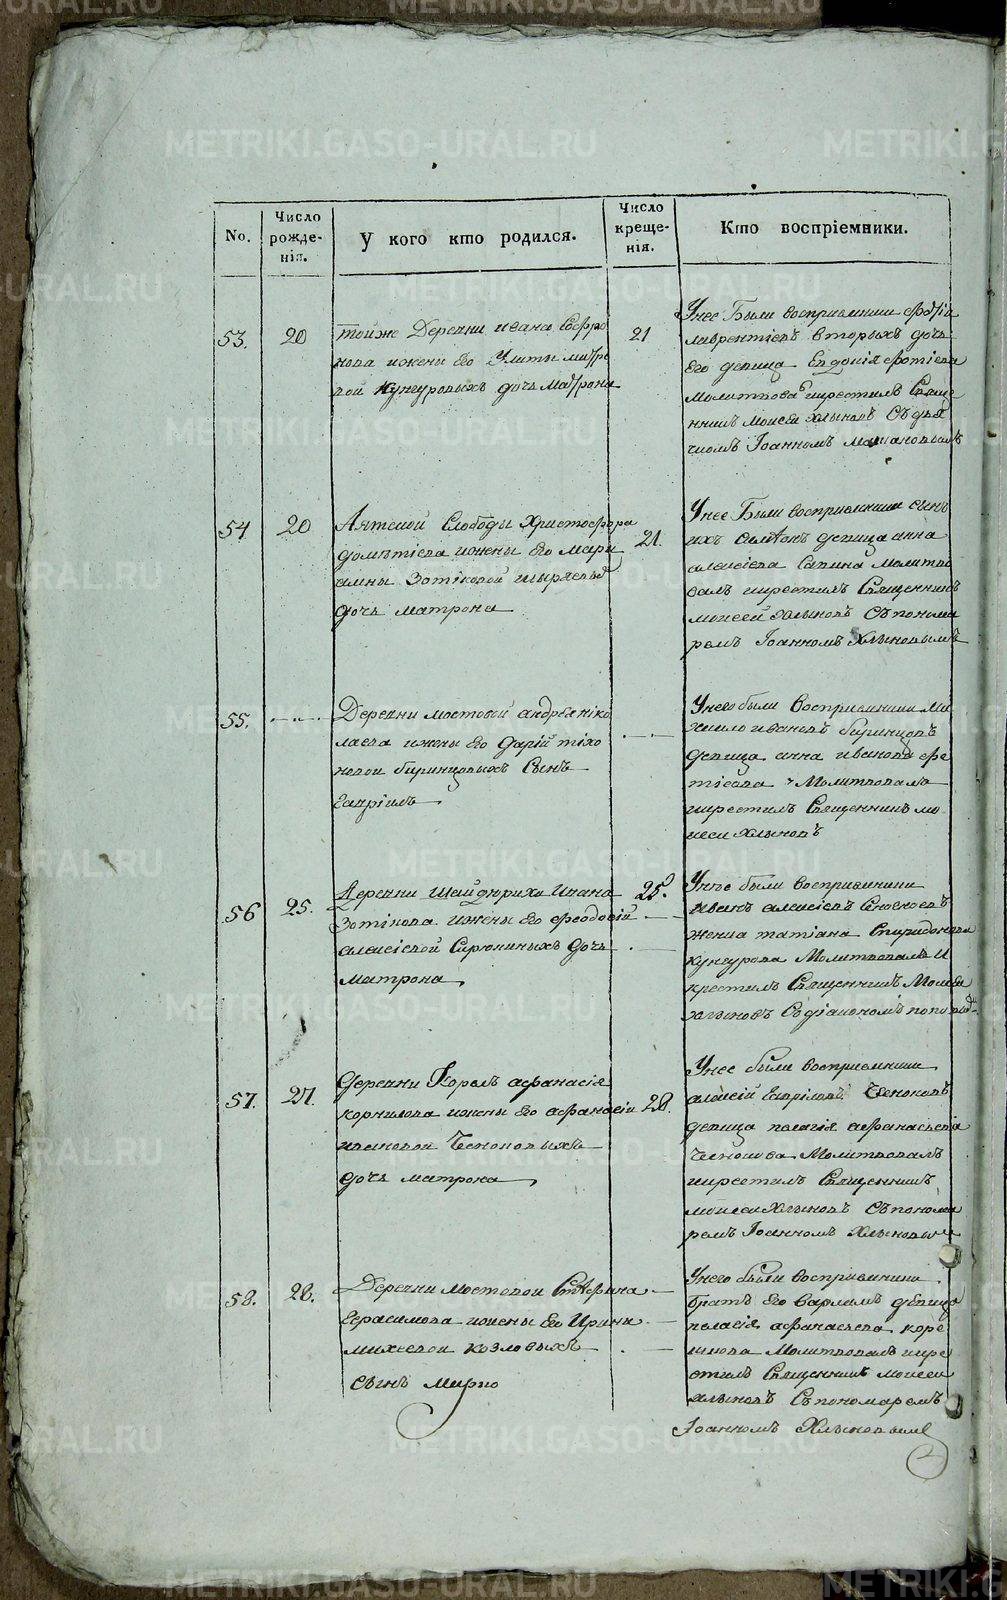 No.
Число
рожде-
нія.
У кого кто родился.
Число
креще-
нія.
Кто воспріемники.
53.
20
тойже Деревни ивана Софро
нова ижены Его Улиты
Кунгуровыхъ дочь матрона
21
Унее Были восприемники
лаврентіевъ вторыхъ дочь
Его девица Евдокія фотіева
молитвовалъ икрестилъ Свяще
нникъ моисей хлыновъ Съдья
чкомъ Іоанномъ
54
20
Аятской Слободы Христофора
ижены Его Мари
амны Зотіковой
дочь матрона
21.
Унее Были восприемники сынъ
ихъ девица анна
алексіева молитво
валъ икрестилъ Священникъ
моисей Хлыновъ Съпонома
ремъ Іоанномъ Хлыновымъ
55.
Деревни мостовой андрея ніко
лаева ижены Его дарій тіхо
новой биринцовыхъ Сынъ
гавріилъ
Унего были Восприемники Ми
хаило ивановъ биринцовъ
девица анна иванова фе
тісова Молитвовалъ
икрестилъ Священникъ мо
исеи Хлыновъ
56
25.
Деревни Шайдурихи Ивана
Зотікова ижены Его феодосій
алексіевой Сирюкиныхъ дочь
матрона
25.
Унее были восприемники
Иванъ алексіевъ
женка татіана Спиридонова
кунгурова Молитвовалъ И
крестилъ Священникъ Моисей
хлыновъ Съдіакономъ
57.
27.
деревни Корелъ афанасія
корнилова ижены Его афанасіи
ивановой Чесноковыхъ
дочь матрона
28.
Унее были восприемники
алексій Гавріловъ Чесноковъ
девица пелагія афанасьева
Чеснокова Молитвовалъ
икрестилъ Священникъ
моисеи Хлыновъ Съпонома
ремъ Іоанномъ Хлыновым
58.
28.
Деревни мостовои Стефана
Герасимова ижены Его Ирины
михеевои козловыхъ
сынъ Марко
Унего были Восприемники
братъ Его Варламъ девица
пелагія афанасьева коре
лкова Молитвовалъ икре
стилъ Священникъ моисеи
хлыновъ Съпономаремъ
Іоанномъ Хлыновымъ
METRIKI.GASO-URAL.RU